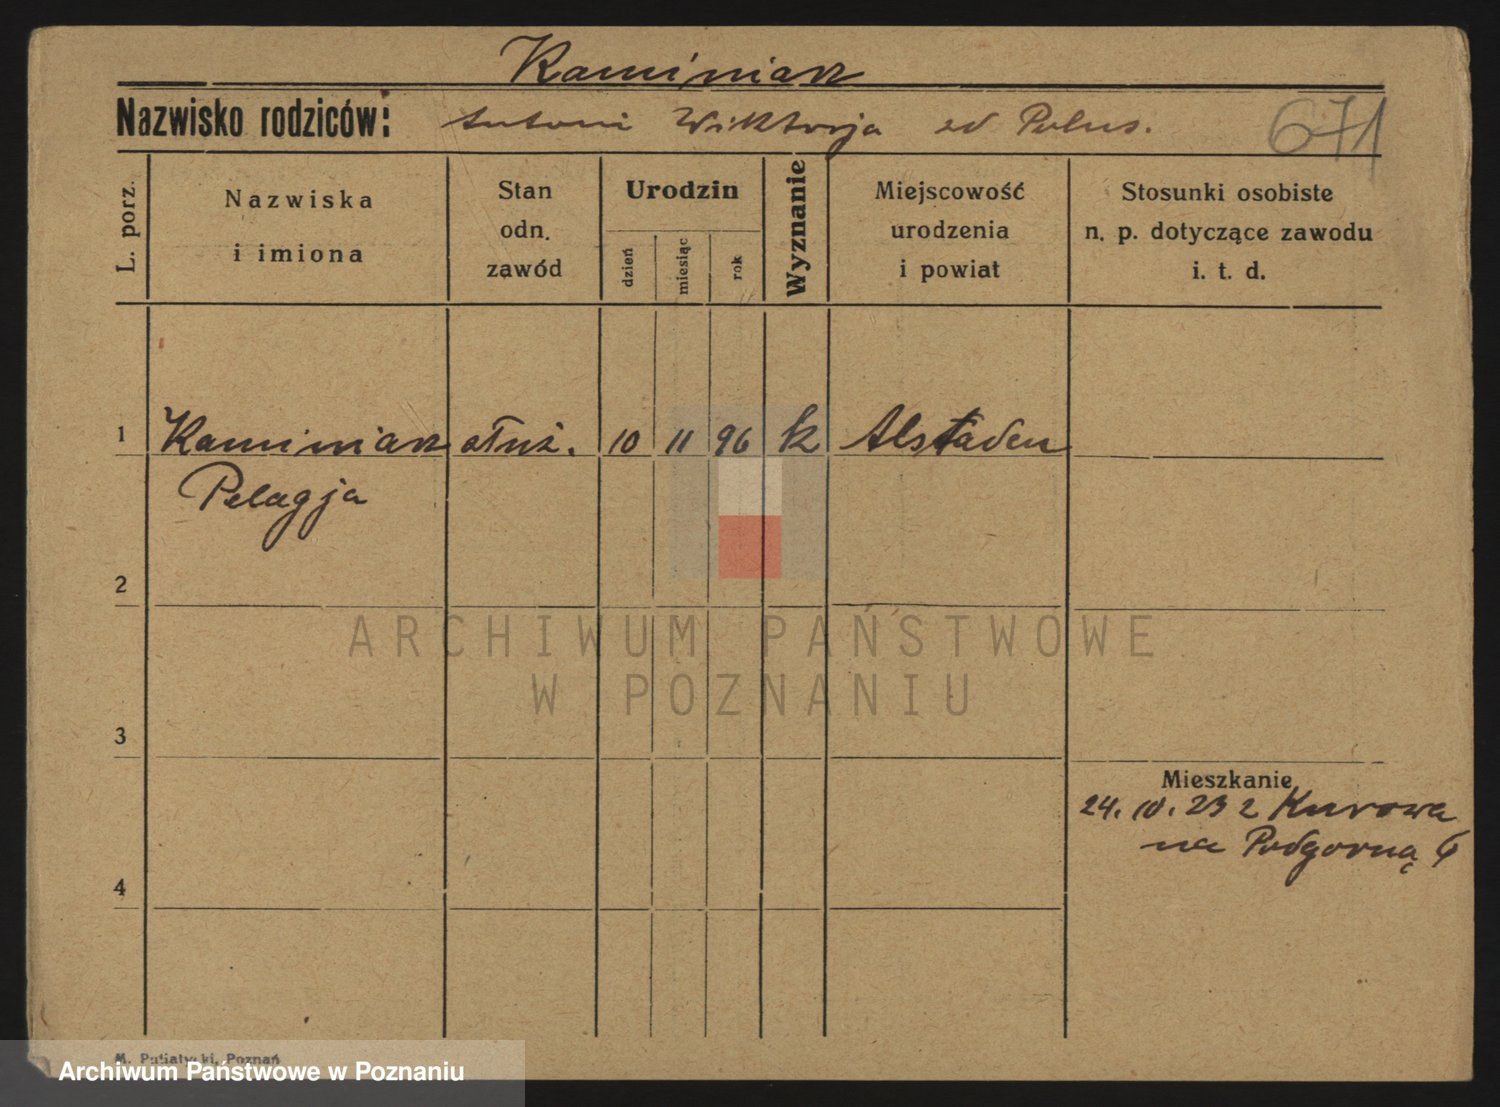 Kaminiarz
Nazwisko rodziców: Antoni Wiktorja zd Polus.
671
L. porz.
Nazwiska
i imiona
Stan
odn.
zawód
Urodzin
dzień
miesiąc
rok
Wyznanie
Miejscowość
urodzenia
i powiat
Stosunki osobiste
n. p. dotyczące zawodu
i. t. d.
1 Kaminiarz służ. 10 11 96 k Alstaden
Pelagja
2
ARCHIWUM PAŃSTWOWE
W POZNANIU
3
Mieszkanie
24. 10. 23 z Kurowa
na Podgorną
4
Poznań
Archiwum Państwowe w Poznaniu